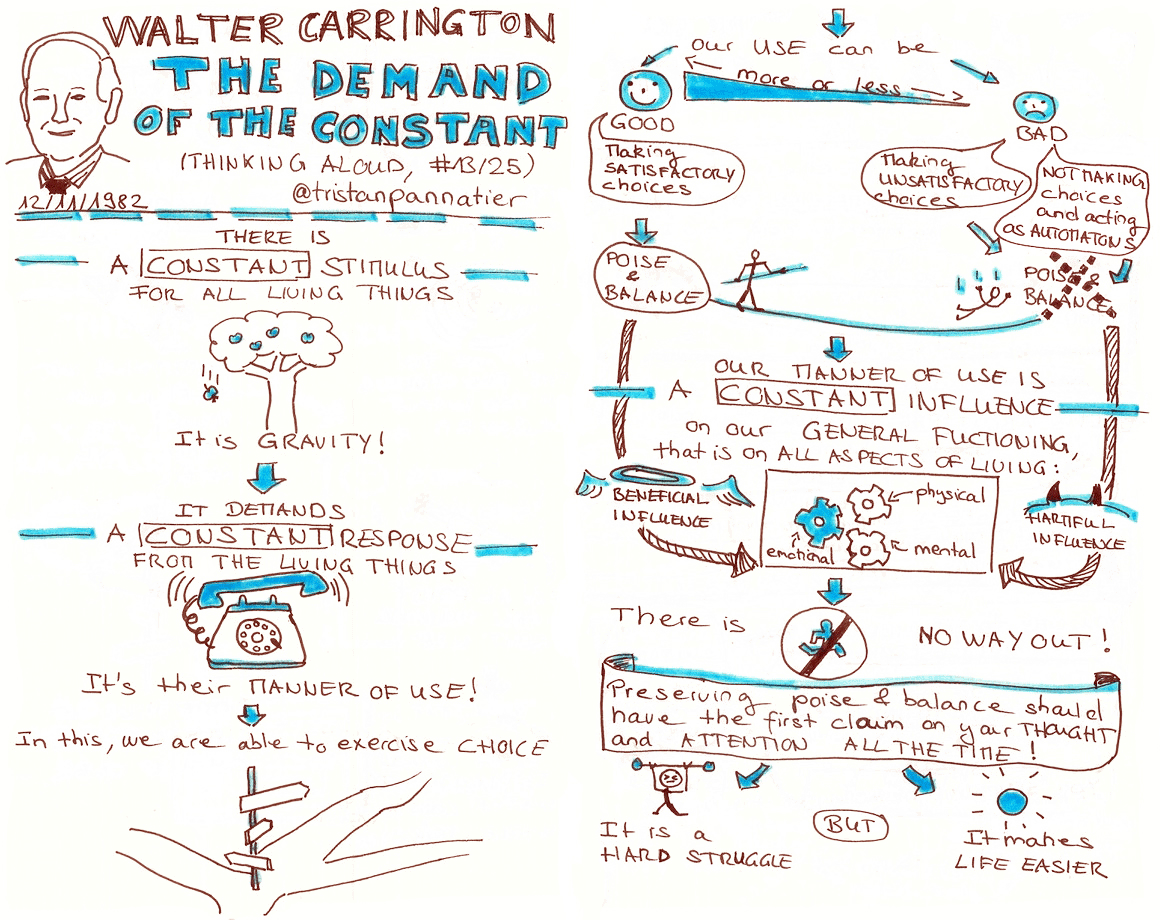 WALTER CARRINGTON
THE DEMAND
OF THE CONSTANT
(THINKING ALOUD, #13/25)
12/11/1982
@tristanpannatier
THERE IS
A CONSTANT STIMULUS
FOR ALL LIVING THINGS
It is GRAVITY!
IT DEMANDS
A CONSTANT RESPONSE
FROM THE LIVING THINGS
It's their MANNER OF USE!
In this, we are able to exercise CHOICE
our USE can be
more or less
GOOD
BAD
Making
SATISFACTORY
choices
Making
UNSATISFACTORY
choices
NOT MAKING
choices
and acting
as AUTOMATONS
POISE
&
BALANCE
POISE &
BALANCE
OUR MANNER OF USE IS
A CONSTANT INFLUENCE
on our GENERAL FUCTIONING,
that is on ALL ASPECTS OF LIVING:
BENEFICIAL
INFLUENCE
physical
emotional
mental
HARMFUL
INFLUENCE
There is
NO WAY OUT!
Preserving poise & balance should
have the first claim on your THOUGHT
and ATTENTION ALL THE TIME!
It is a
HARD STRUGGLE
BUT
It makes
LIFE EASIER